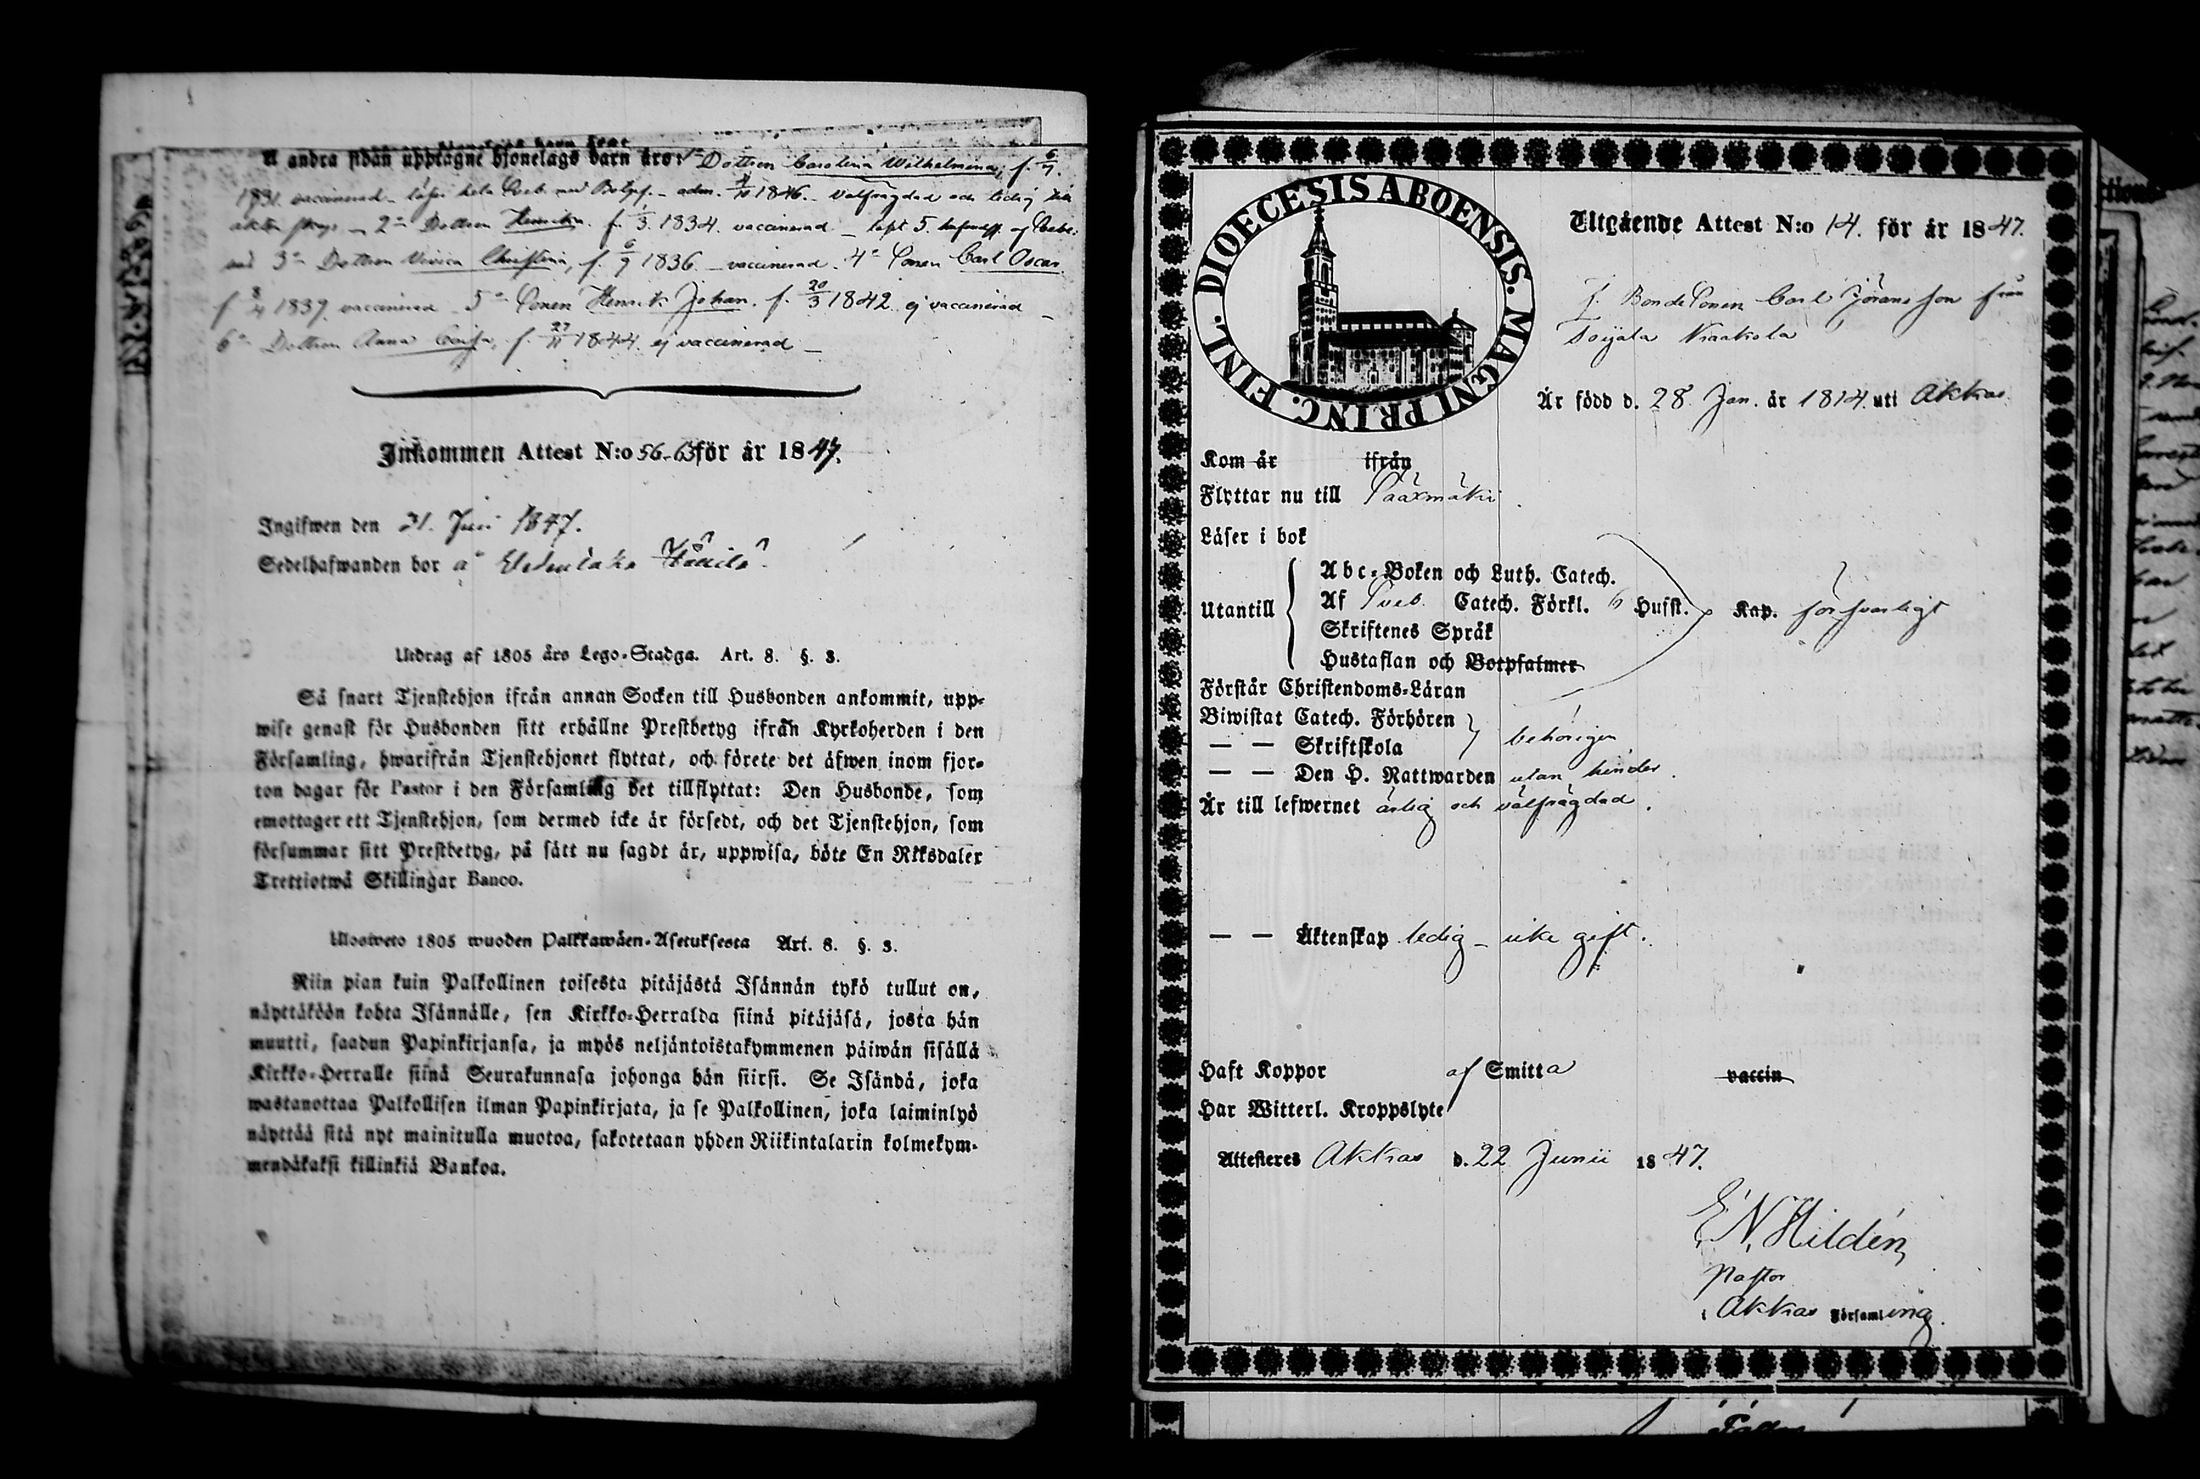 å andra sidan upptagne hjonelags barn äro: 1o Dottren Carolina Wilhelmina, f. 6/7.
1831. vaccinerad - läser hela Cateb. med Botps. - adm. 1846. - välfrägdad och ledig från
äktenskaps - 2o Dottren Henrika. f. 1/3. 1834. vaccinerad - läst 5. hufvudst. af Catec.
3o Dottren Vivica Christina, f. 6/9 1836. - vaccinerad. 4o Sonen Carl Oscar
f. 8/4 1839. vaccinerad - 5o Sonen Henrik Johan. f. 20/3 1842. ej vaccinerad -
6o Dottren Anna Cajsa, f. 27/11 1844. ej vaccinerad -
Inkommen Attest N:o 56-63 för år 1847.
Ingifwen den 21. Juni 1847.
Sedelhafwanden bor å Uedenlaka
Utdrag af 1805 års Lego-Stadga. Art. 8. §. 3.
Så snart Tjenstehjon ifrån annan Socken till Husbonden ankommit, upp-
wise genast för Husbonden sitt erhållne Prestbetyg ifrån Kyrkoherden i den
Församling, hwarifrån Tjenstehjonet flyttat, och förete det äfwen inom fjor-
ton dagar för Pastor i den Församling det tillflyttat: Den Husbonde, som
emottager ett Tjenstehjon, som dermed icke är försedt, och det Tjenstehjon, som
försummar sitt Prestbetyg, på sätt nu sagdt är, uppwisa, böte En Riksdaler
Trettiotwå Skillingar Banco.
Ulosweto 1805 wuoden Palkkawäen-Asetuksesta Art. 8. §. 3.
Niin pian kuin Palkollinen toisesta pitäjästä Isännän tykö tullut on,
näyttäköön kohta Isännälle, sen Kirkko-Herralda siinä pitäjäsä, josta hän
muutti, saadun Papinkirjansa, ja myös neljäntoistakymmenen päiwän sisällä
Kirkko-Herralle siinä Seurakunnasa johonga hän siirsi. Se Isändä, joka
wastanottaa Palkollisen ilman Papinkirjata, ja se Palkollinen, joka laiminlyö
näyttää sitä nyt mainitulla muotoa, sakotetaan yhden Riikintalarin kolmekym-
mendäkaksi killinkiä Bankoa.
DIOECESIS ABOENSIS. MAGNI PRINC. FINL.
Utgående Attest N:o 14. för år 1847.
f. BondeSonen Carl Jöransson från
Toijala Kraakola
Är född d. 28 Jan. år 1814. uti Akkas
Kom år ifrån
Flyttar nu till Sääxmäki.
Läser i bok
Abc-Boken och Luth. Catech.
Utantill Af Sveb. Catech. Förkl. 6 Hufst. Kap. försvarligt
Skriftenes Språk
Hustaflan och Botpsalmer
Förstår Christendoms-Läran
Biwistat Catech. Förhören
— — Skriftskola behörigen
— — Den H. Nattwarden utan hinder.
Är till lefwernet ärlig och välfrägdad.
— — Äktenskap ledig - icke gift.
Haft Koppor af Smitta vaccin
Har Witterl. Kroppslyte
Attesteres Akkas d. 22 Junii 1847.
E.N. Hildén,
Pastor
i Akkas Församling.